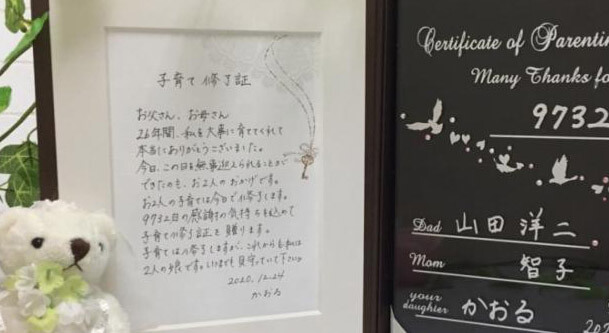 子育て修了証
お父さん、お母さん
26年間、私を大事に育ててくれて
本当にありがとうございました。
今日、この日を無事迎えられることが
できたのも、お2人のおかげです。
お2人の子育ては今日で修了します。
9732日の感謝の気持ちを込めて
子育て修了証を贈ります。
子育ては修了しますが、これからも私は
2人の娘です。いつまでも見守っていて下さい。
2020.12.24
かおる
Certificate of Parentin
Many Thanks fo
9732
Dad 山田 洋二
Mom 智子
your daughter かおる
202